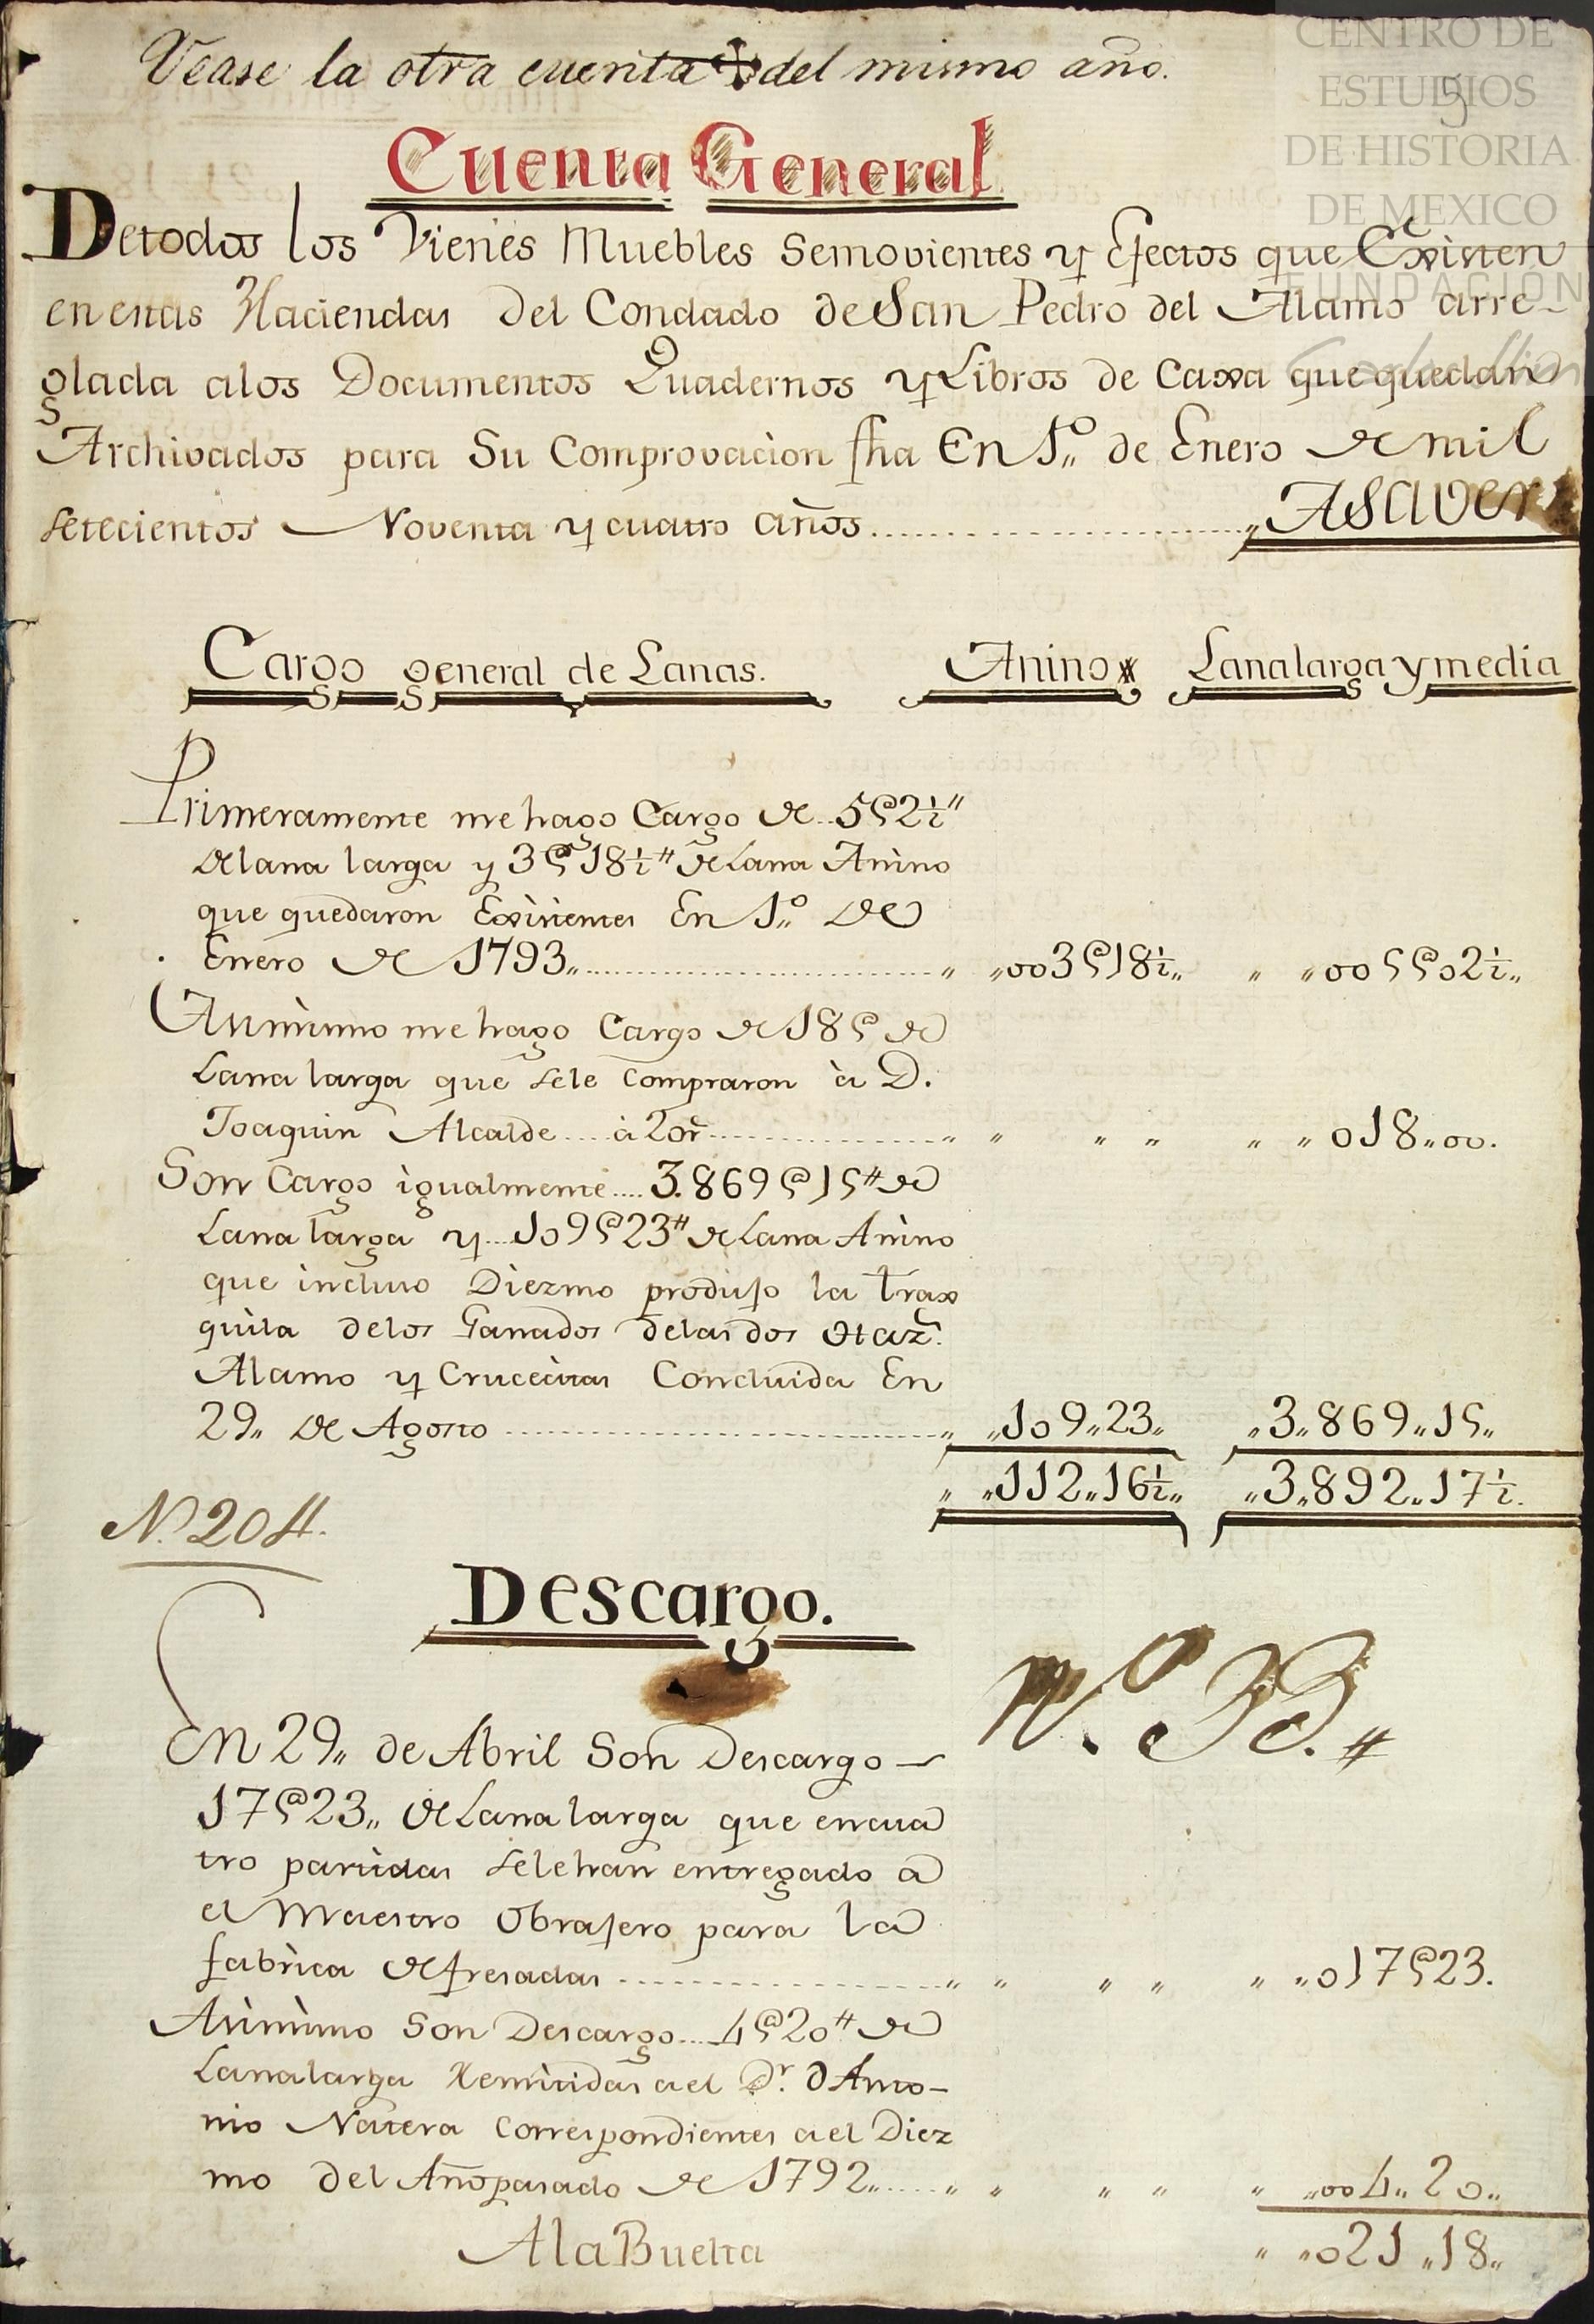 Vease la otra cuenta del mismo año.
CENTRO DE
ESTUDIOS
DE HISTORIA
DE MEXICO
FUNDACIÓN
5
Cuenta General
Detodos los Vienes Muebles Semovientes y Efectos que Existen
en estas Haciendas Del Condado de San Pedro del Alamo arre-
glada alos Documentos Quadernos y Libros de Caxa que quedan
Archivados para Su Comprovaciòn fha En 1,,º de Enero de mil
setecientos Noventa y cuatro años.................. ASAVER
Cargo general de Lanas. Anino Lana larga y media
Primeramente me hago Cargo de..5@2½"
de lana larga y 3@18½" de Lana Anino
que quedaron Existentes En 1,,º de
Enero de 1793,,.............. " "003@18½" " "005@02½"
Asimismo me hago Cargo de 18@ de
Lana larga que sele compraron à D.
Joaquin Alcalde....à 20r............ " " " " " "018,,00.
Son Cargo igualmente....3.869@15" de
Lana larga y....109@23" de Lana Anino
que incluso Diezmo produjo la Trax
quila delos Ganados delas dos Haz.s
Alamo y Crucecitas Concluida En
29,, de Agosto .................. " "109,,23,, "3,,869,,15,,
" "112,,16½" "3,,892,,17½.
N. 204.
Descargo.
Nº. 33.
En 29,, de Abril Son Descargo
17@23,, de Lana larga que en cua
tro partidas sele han entregado a
el Maestro Obrajero para la
fabrica de fresadas .............. " " " " " "017@23.
Asimismo Son Descargo....4@20" de
Lana larga Remitidas a el Dr. D Anto-
nio Natera correspondientes a el Diez
mo del Año pasado de 1792,,..... " " " " " "004,,20,,
Ala Buelta " "021,,18,,